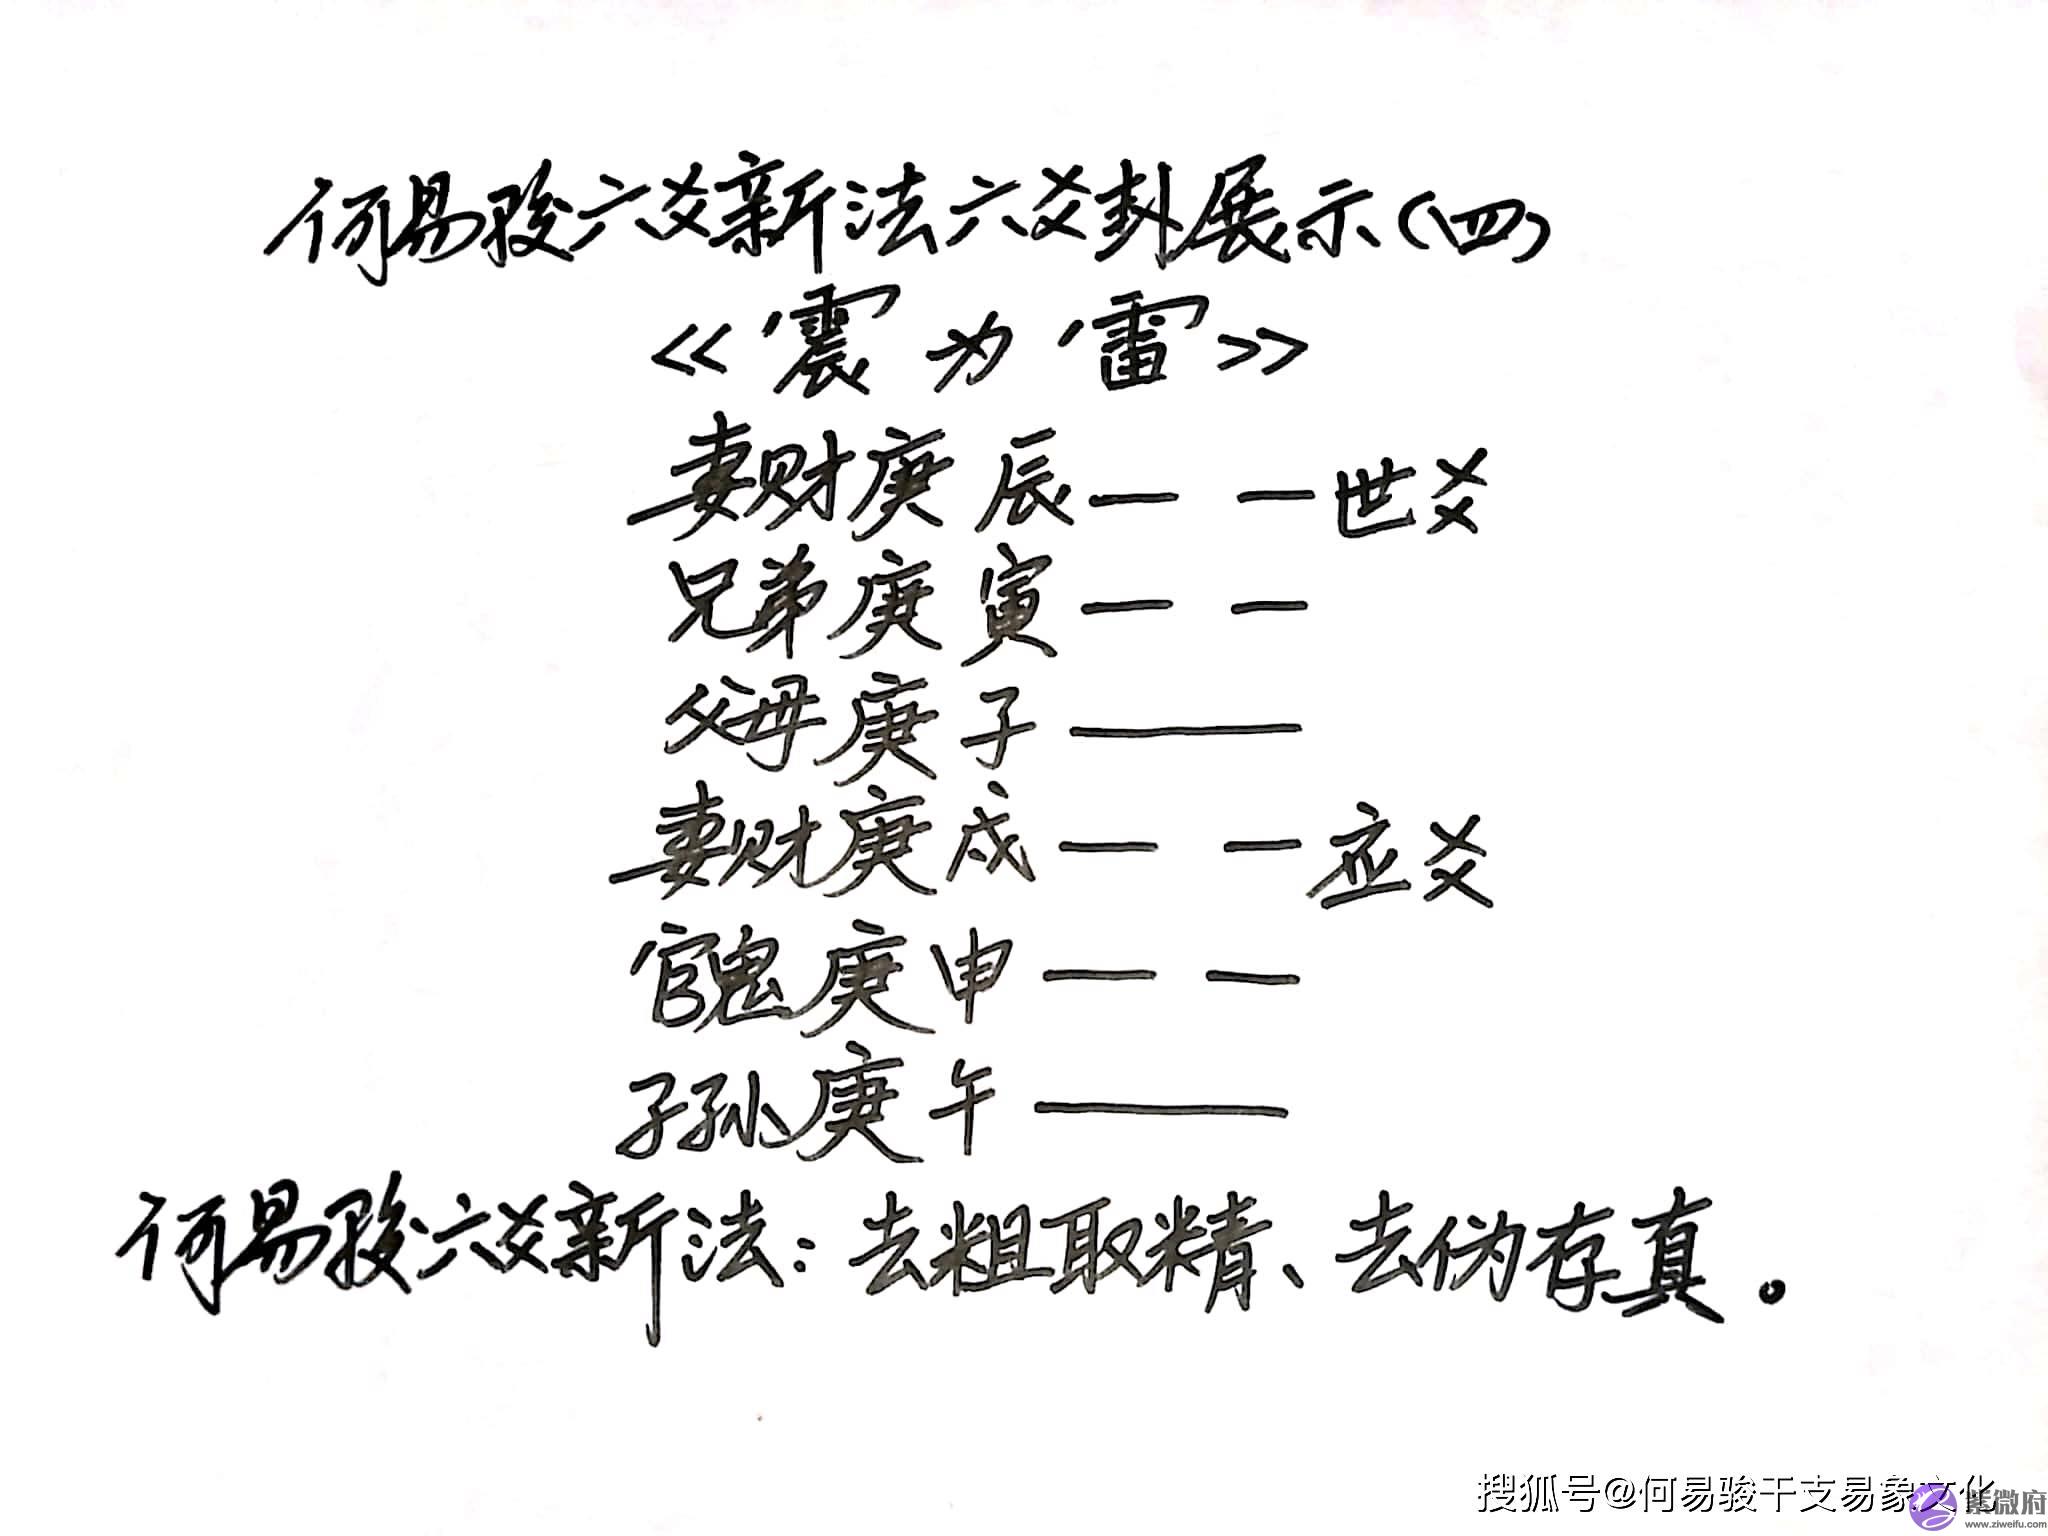 何易骏六爻新法六爻卦展示(四)
《震为雷》
妻财庚辰— —世爻
兄弟庚寅— —
父母庚子———
妻财庚戌— —应爻
官鬼庚申— —
子孙庚午———
何易骏六爻新法:去粗取精、去伪存真。
搜狐号@何易骏干支易象文化
紫微府
www.ziweifu.com